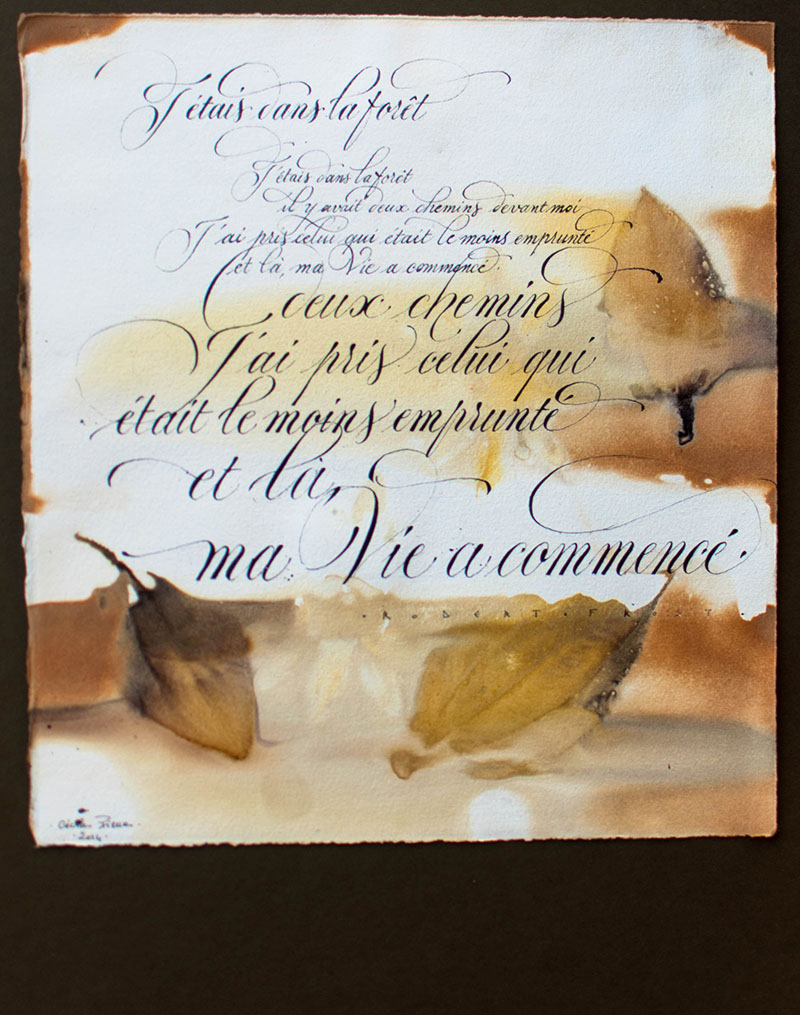 J'étais dans la forêt
J'étais dans la forêt
il y avait deux chemins devant moi
J'ai pris celui qui était le moins emprunté
et là, ma Vie a commencé.
deux chemins
J'ai pris celui qui
était le moins emprunté
et là,
ma Vie a commencé.
. ROBERT . FROST .
2014